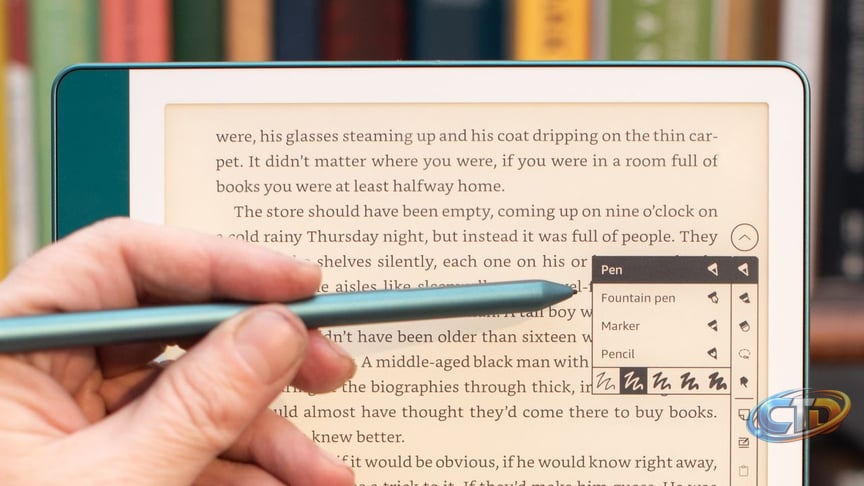 were, his glasses steaming up and his coat dripping on the thin car-
pet. It didn't matter where you were, if you were in a room full of
books you were at least halfway home.
The store should have been empty, coming up on nine o'clock on
cold rainy Thursday night, but instead it was full of people. They
shelves silently, each one on his or
aisles like
A tall boy
have been older than sixteen
A middle-aged black man with
the biographies through thick,
almost have thought they'd come there to buy books.
knew better.
if it would be obvious, if he would know right away,
a trick to it. If they'd make him guess. He was
Pen
Fountain pen
Marker
Pencil
CTD